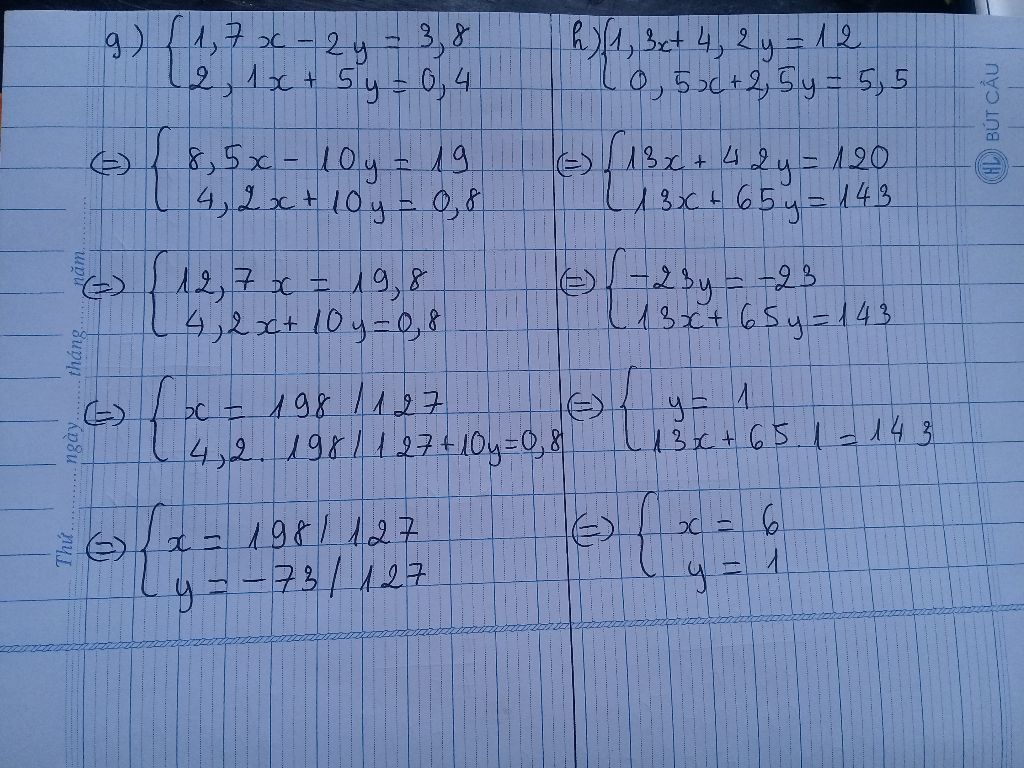 g) { 1,7x - 2y = 3,8
2,1x + 5y = 0,4
(=) { 8,5x - 10y = 19
4,2x + 10y = 0,8
(=) { 12,7x = 19,8
4,2x + 10y = 0,8
(=) { x = 198/127
4,2. 198/127 + 10y = 0,8
(=) { x = 198/127
y = -73/127
h) { 1,3x + 4,2y = 12
0,5x + 2,5y = 5,5
(=) { 13x + 42y = 120
13x + 65y = 143
(=) { -23y = -23
13x + 65y = 143
(=) { y = 1
13x + 65.1 = 143
(=) { x = 6
y = 1
Thứ ........ ngày ........ tháng ........ năm ........
HL BÚT CẦU